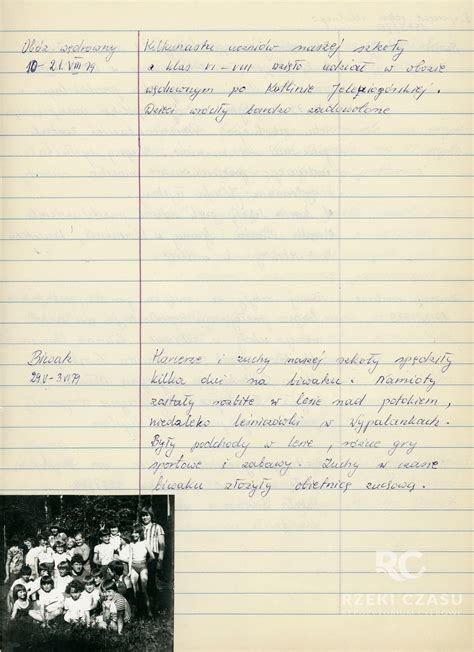 Obóz wędrowny
10-21.VIII 79
Kilkunastu uczniów naszej szkoły
z klas VI-VIII wzięło udział w obozie
wędrownym po Kotlinie Jeleniogórskiej.
Dzieci wróciły bardzo zadowolone
Biwak
29.V-3.VI 79
Harcerze i zuchy naszej szkoły spędziły
kilka dni na biwaku. Namioty
zostały rozbite w lesie nad potokiem,
niedaleko leśniczówki w Wypalankach.
Były podchody w lesie, różne gry
sportowe i zabawy. Zuchy w czasie
biwaku złożyły obietnicę zuchową.
RC
RZEKI CZASU